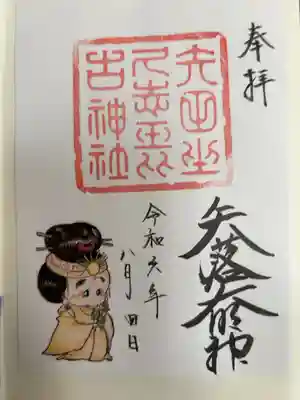 奉拝
矢田坐
久志玉比
古神社
矢落大明神
令和年
八月四日